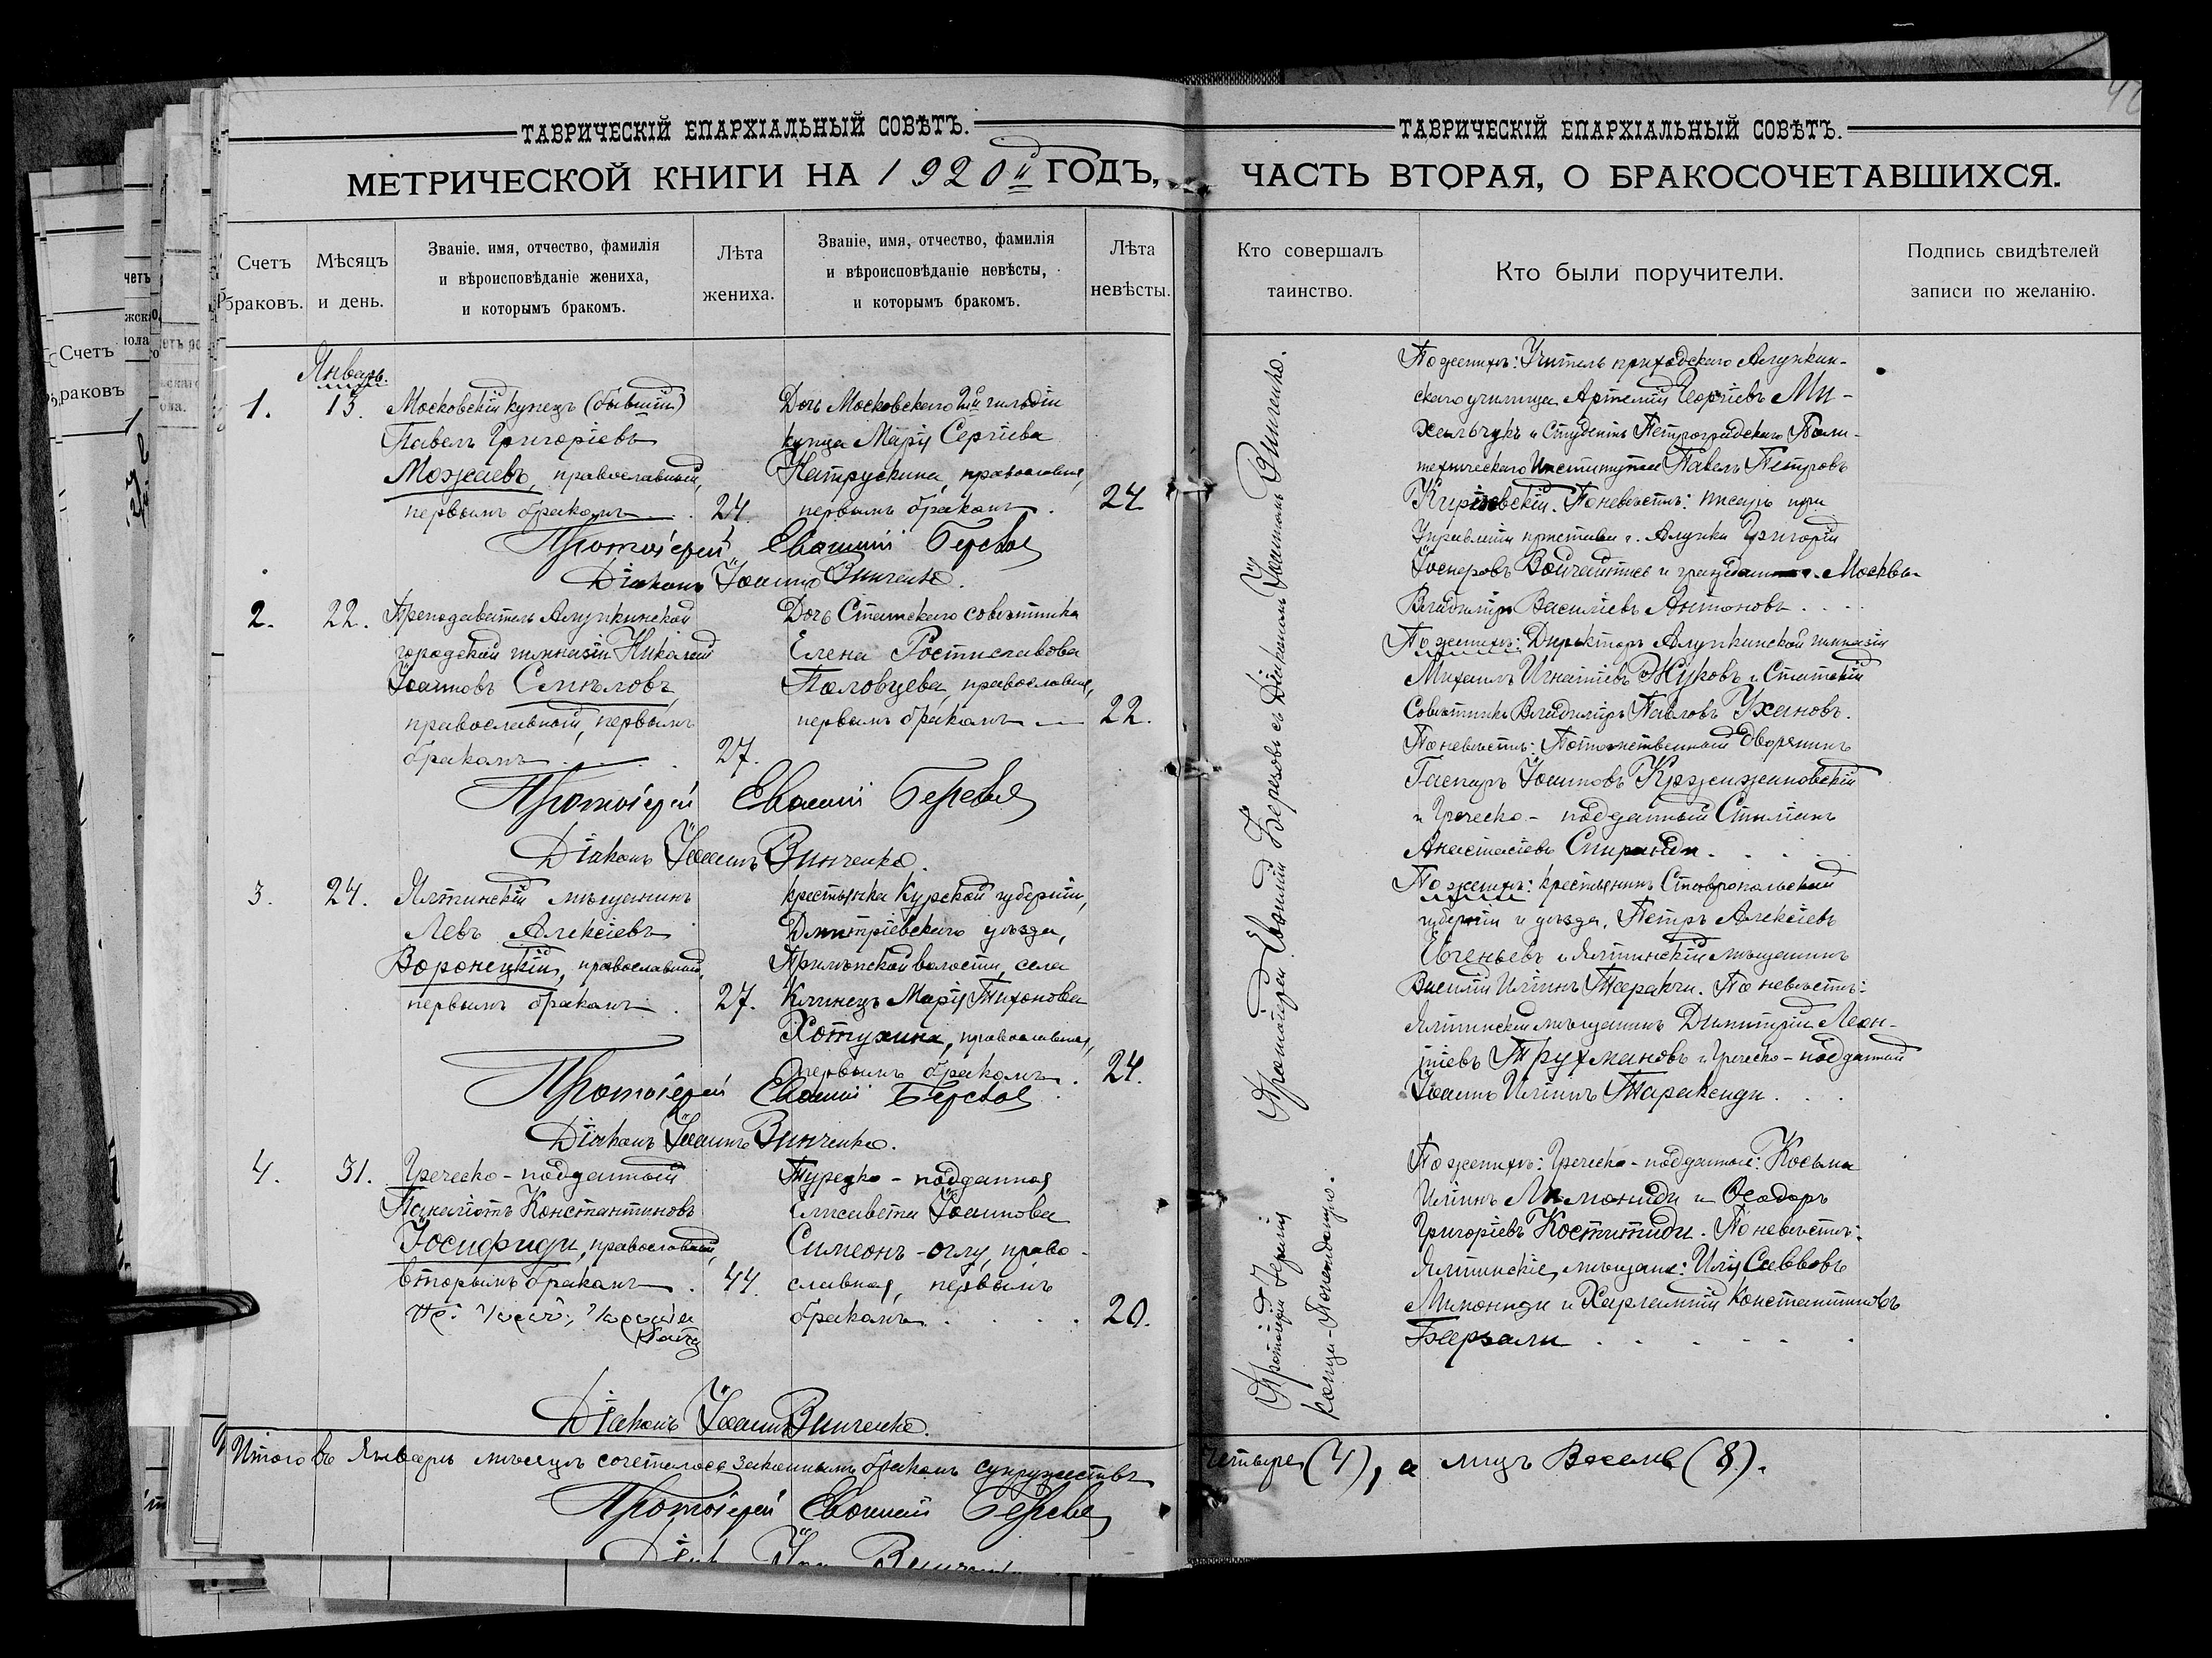 ТАВРИЧЕСКІЙ ЕПАРХІАЛЬНЫЙ СОВѢТЪ.
МЕТРИЧЕСКОЙ КНИГИ НА 1920й ГОДЪ,
Счетъ браковъ.
Мѣсяцъ и день.
Званіе. имя, отчество, фамилія
и вѣроисповѣданіе жениха,
и которымъ бракомъ.
Лѣта
жениха.
Званіе, имя, отчество, фамилія
и вѣроисповѣданіе невѣсты,
и которымъ бракомъ.
Лѣта
невѣсты.
Январь.
1.
13.
Московскій купецъ (бывшій)
Павелъ Григоріевъ
Можаевъ, православный,
первымъ бракомъ
24.
Дочь Московскаго 2й гильдіи
купца Марія Сергіева
Патрускина, православная,
первымъ бракомъ.
24
Протоіерей Евѳимій Березовъ
Діаконъ Іоаннъ Винченко.
2.
22.
Преподаватель Алупкинской
городской гимназіи Николай
Іоанновъ Смѣловъ,
православный, первымъ
бракомъ
27.
Дочь Статскаго совѣтника
Елена Ростиславова
Половцева, православная,
первымъ бракомъ
22.
Протоіерей Евѳимій Березовъ
Діаконъ Іоаннъ Винченко.
3.
24.
Ялтинскій мѣщанинъ
Левъ Алексіевъ
Воронецкій, православный,
первымъ бракомъ.
27.
крестьянка Курской губерніи,
Дмитріевскаго уѣзда,
волости, села
Клинецъ Марія Тихонова
Хотухина, православная,
первымъ бракомъ.
24.
Протоіерей Евѳимій Березовъ
Діаконъ Іоаннъ Винченко.
4.
31.
Греческо-подданный
Панаіотъ Константиновъ
Іосифиди, православный,
вторымъ бракомъ.
44.
Турецко-подданная
Елисавета Іоаннова
Симеонъ-оглу, право-
славная, первымъ
бракомъ.
20.
Діаконъ Іоаннъ Винченко.
Итого въ Январѣ мѣсяцѣ сочеталось законнымъ бракомъ супружествъ
Протоіерей Евѳимій Березовъ
ТАВРИЧЕСКІЙ ЕПАРХІАЛЬНЫЙ СОВѢТЪ.
ЧАСТЬ ВТОРАЯ, О БРАКОСОЧЕТАВШИХСЯ.
Кто совершалъ
таинство.
Кто были поручители.
Подпись свидѣтелей
записи по желанію.
Протоіерей Евѳимій Березовъ съ Діакономъ Іоанномъ Винченко.
Протоіерей
По женихѣ: Учитель приходскаго Алупкин-
скаго училища Артемій Георгіевъ Ми-
хальчукъ и Студентъ Петроградскаго Поли-
техническаго Института Павелъ Петровъ
По невѣстѣ: писарь при
Управленіи пристава г. Алупки Григорій
и гражданинъ г. Москвы
Владиміръ Василіевъ Антоновъ
По женихѣ: Директоръ Алупкинской гимназіи
Михаилъ Игнатіевъ Жуковъ и Статскій
Совѣтникъ Владиміръ Павловъ Ухановъ.
По невѣстѣ: Потомственный дворянинъ
Гаспаръ Іоанновъ Кржижановскій
и Греческо-подданный Стиліанъ
Анастасіевъ Спиранди.
По женихѣ: крестьянинъ Ставропольской
губерніи и уѣзда, Петръ Алексіевъ
Евченьевъ и Ялтинскій мѣщанинъ
Василій Иліинъ Таракчи. По невѣстѣ:
Ялтинскій мѣщанинъ Димитрій Леон-
тіевъ Трухмановъ и Греческо-подданный
Іоаннъ Иліинъ Таракенди.
По женихѣ: Греческо-подданные: Косьма
Иліинъ Лимониди и Ѳеодоръ
Григоріевъ Коститиди. По невѣстѣ:
Ялтинскіе мѣщане: Илія Савовъ
Мимониди и Харлампій Константиновъ
четыре (4), а лицъ Восемь (8).